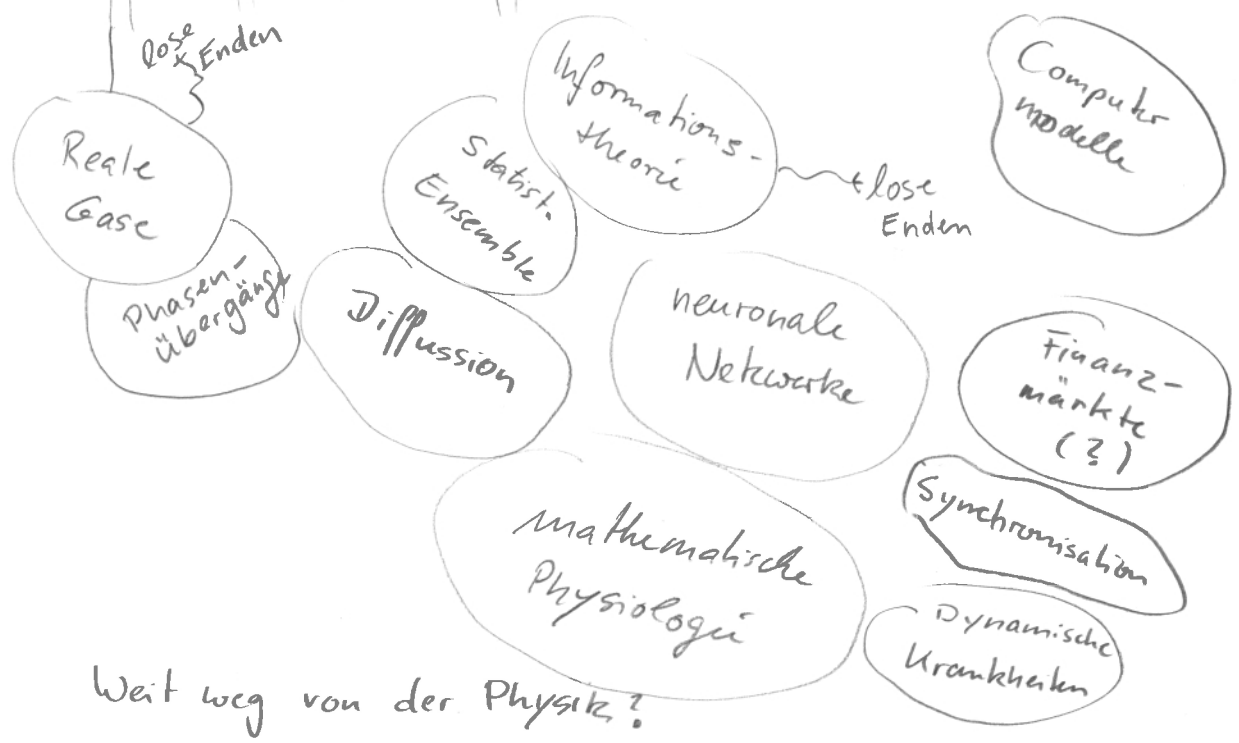 lose
Enden
Reale
Gase
Phasen-
übergänge
Statist.
Ensemble
Informations-
theorie
lose
Enden
Computer
modelle
Diffussion
neuronale
Netzwerke
Finanz-
märkte
(?)
Synchronisation
mathematische
Physiologie
Dynamische
Krankheiten
Weit weg von der Physik?